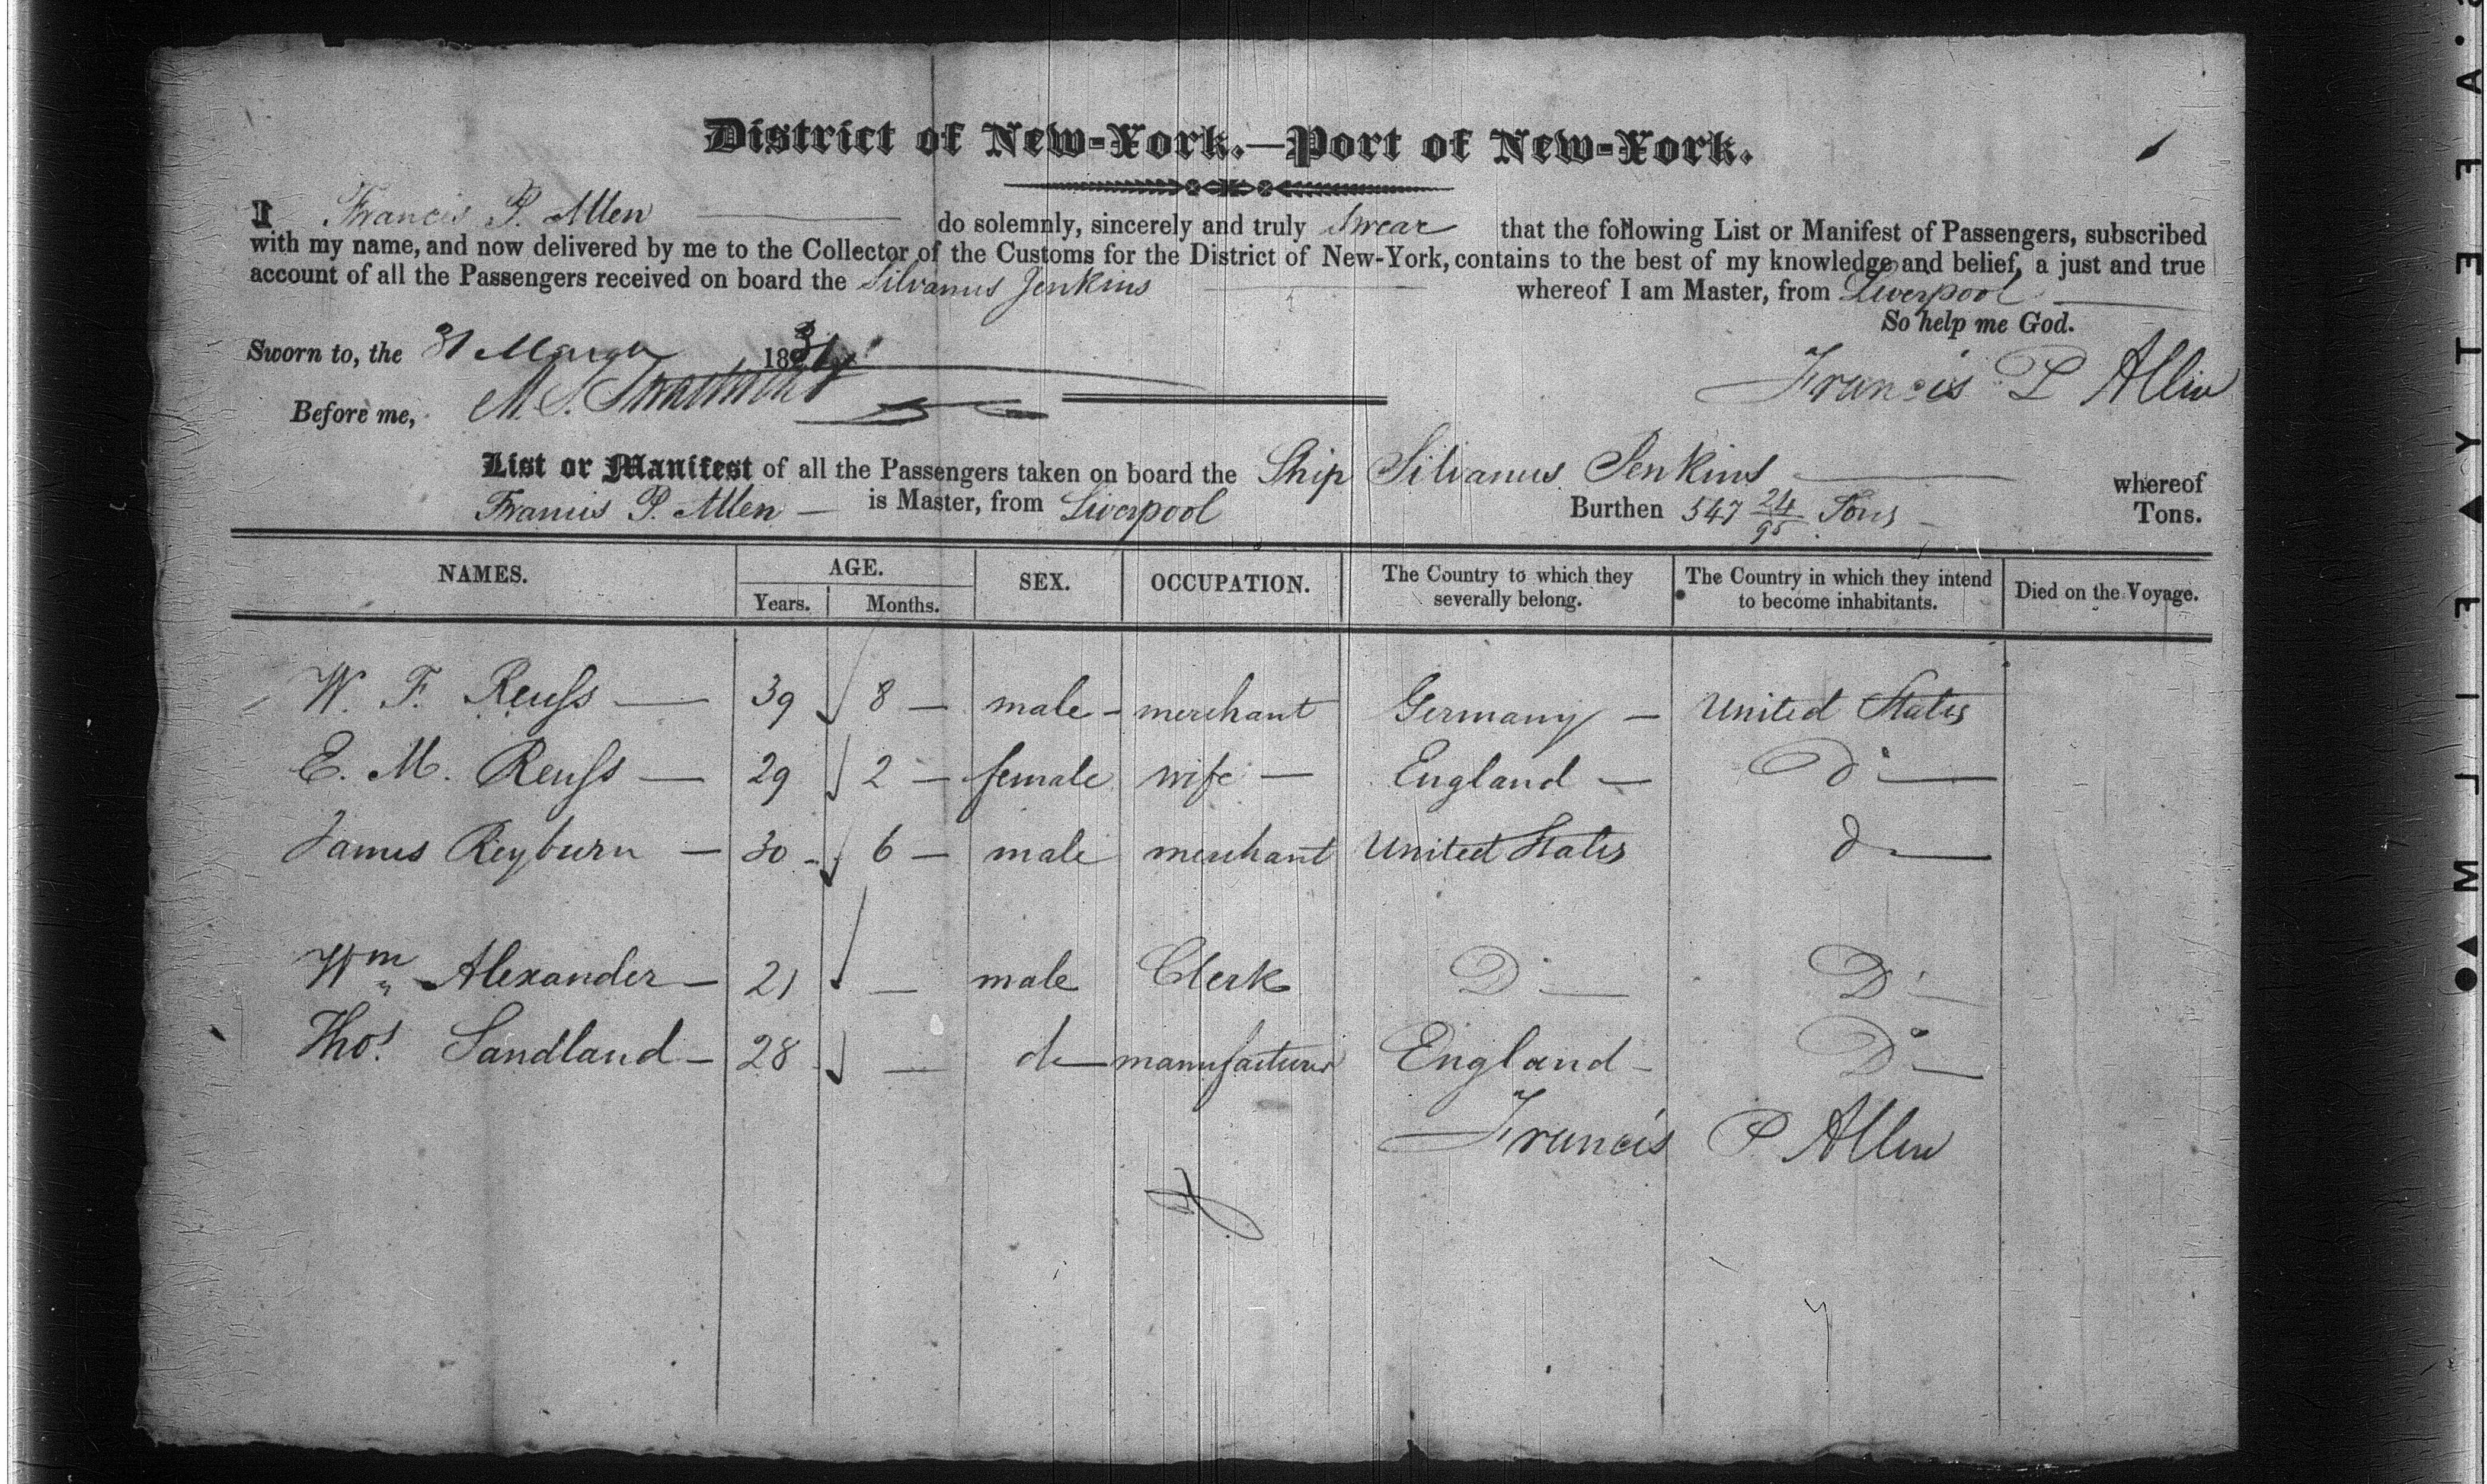 District of New-York.—Port of New-York.
I Francis P. Allen do solemnly, sincerely and truly swear that the following List or Manifest of Passengers, subscribed
with my name, and now delivered by me to the Collector of the Customs for the District of New-York, contains to the best of my knowledge and belief, a just and true
account of all the Passengers received on board the Silvanus Jenkins whereof I am Master, from Liverpool
So help me God.
Sworn to, the 31 March 1831
Francis P Allen
Before me, M. S.
List or Manifest of all the Passengers taken on board the Ship Silvanus Jenkins whereof
Francis P. Allen — is Master, from Liverpool Burthen 547 24/95 Tons Tons.
NAMES. AGE. SEX. OCCUPATION. The Country to which they severally belong. The Country in which they intend to become inhabitants. Died on the Voyage.
Years. Months.
W. F. Reuſs — 39 8 — male - merchant Germany — United States
E. M. Reuſs — 29 2 — female wife — England — Do —
James Reyburn — 30 - 6 — male merchant United States do —
Wm Alexander — 21 — male Clerk Do — Do —
Thos. Sandland — 28 — do — manufacturer England - Do —
Francis P Allen